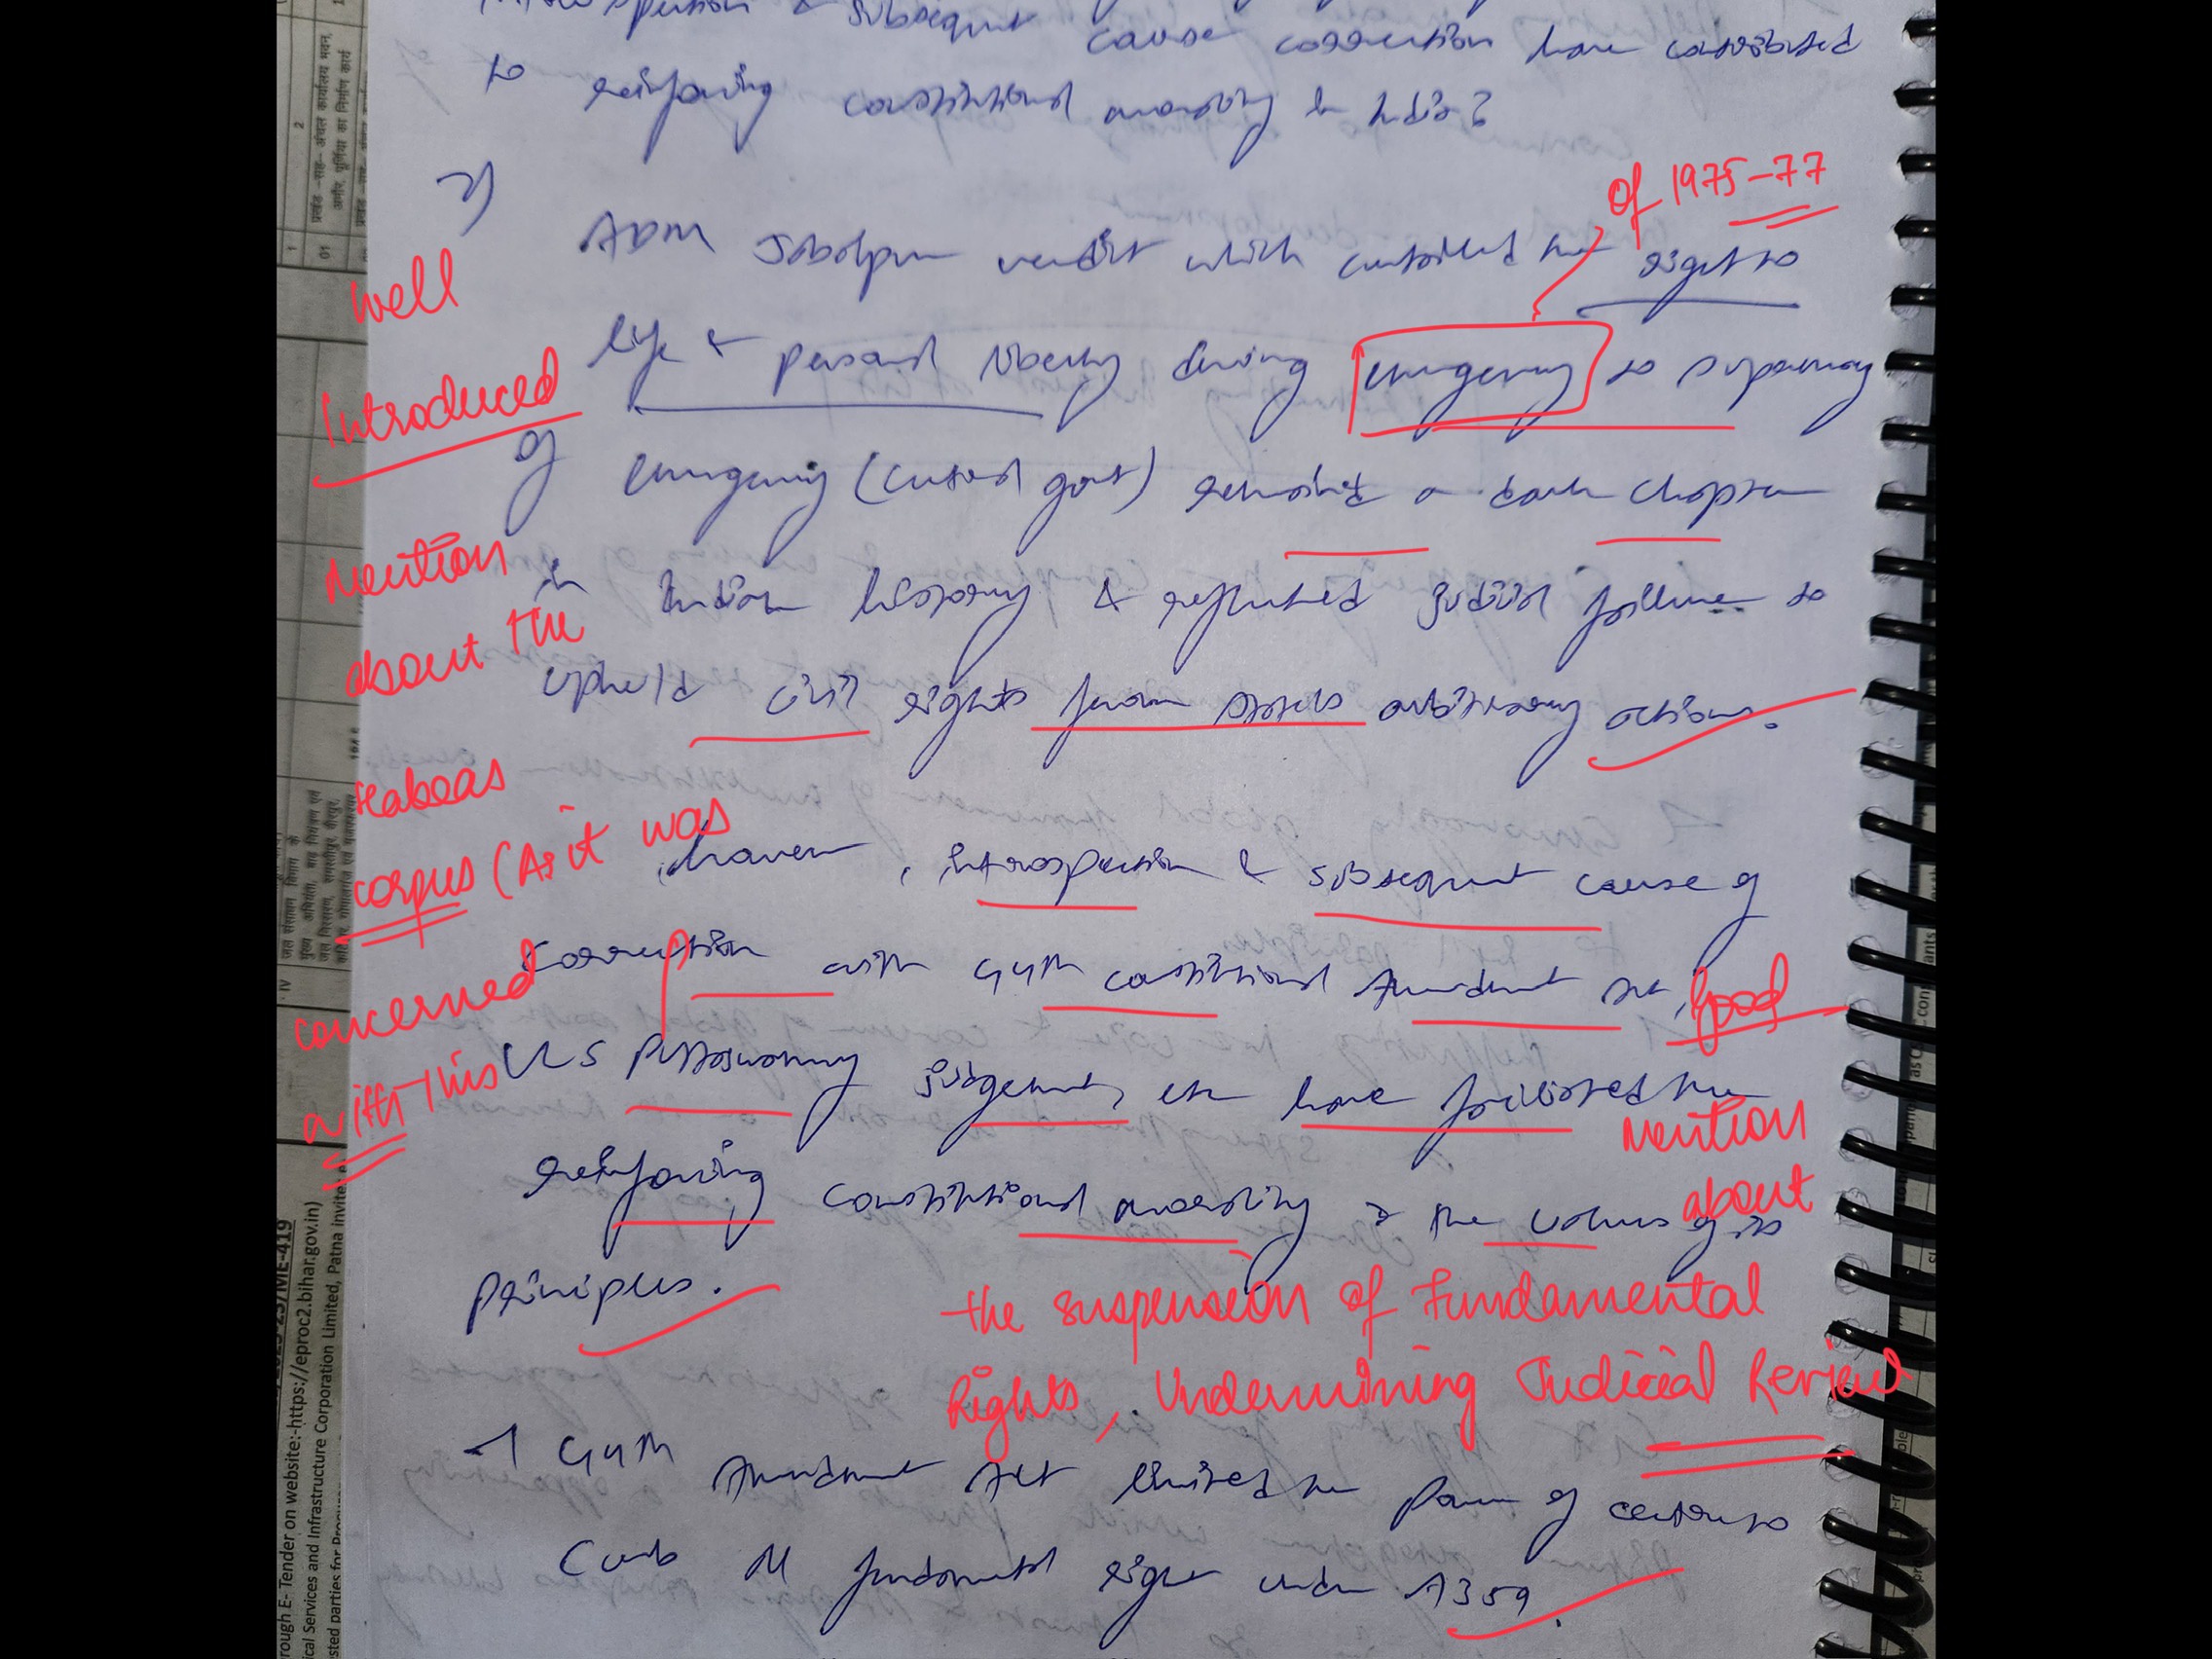 introspection & subsequent cause correction have contributed
to reinforcing constitutional morality in India?
of 1975-77
ADM Jabalpur verdict which curtailed the right to
life & personal liberty during emergency to supremacy
of emergency (central govt) remained a dark chapter
in Indian history & reflected judicial failure to
uphold civil rights from states arbitrary actions.
Well
Introduced
Mention
about the
Habeas
corpus (As it was
concerned
with This
however, introspection & subsequent cause of
correction with 44th constitutional Amendment Act,
Good
KS Puttaswamy judgement, etc have facilitated the
reinforcing constitutional morality & the values of its
principles.
Mention
about
the suspension of Fundamental
Rights, Undermining Judicial Review
→ 44th Amendment Act limited the power of centre to
curb all fundamental right under A359.
2
1
01
प्रखंड -सह- अंचल कार्यालय भवन,
अमौर, पूर्णिया का निर्माण कार्य
IV
जल संसाधन विभाग के
rough E- Tender on website:-https://eproc2.bihar.gov.in)
ical Services and Infrastructure Corporation Limited, Patna invites
sted parties for